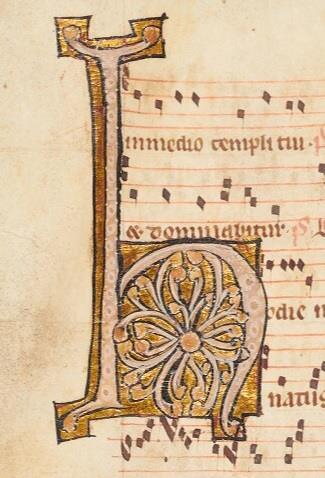 in medio templi tui. p
& dominabitur. ps
H
odie n
natus